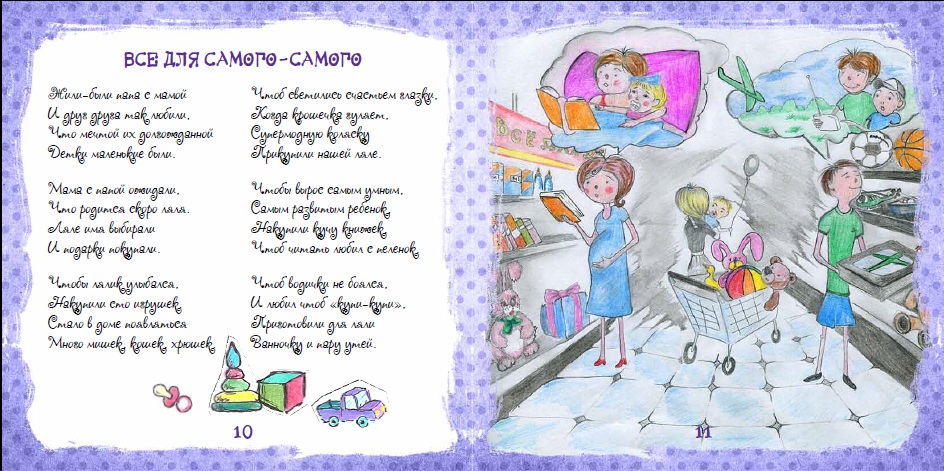 ВСЕ ДЛЯ САМОГО-САМОГО
Жили-были папа с мамой
И друг друга так любили,
Что мечтой их долгожданной
Детки маленькие были.
Мама с папой ожидали,
Что родится скоро ляля.
Ляле имя выбирали
И подарки покупали.
Чтобы лялик улыбался,
Накупили сто игрушек
Стало в доме появляться
Много мишек, кошек, хрюшек
Чтоб светились счастьем глазки,
Когда крошечка гуляет,
Супермодную коляску
Прикупили нашей ляле.
Чтобы вырос самым умным,
Самым развитым ребенок,
Накупили кучу книжек
Чтоб читать любил с пеленок.
Чтоб водички не боялся,
И любил чтоб «купи-купи»,
Приготовили для ляли
Ванночку и пару утей.
10
ВСЁ Д
11